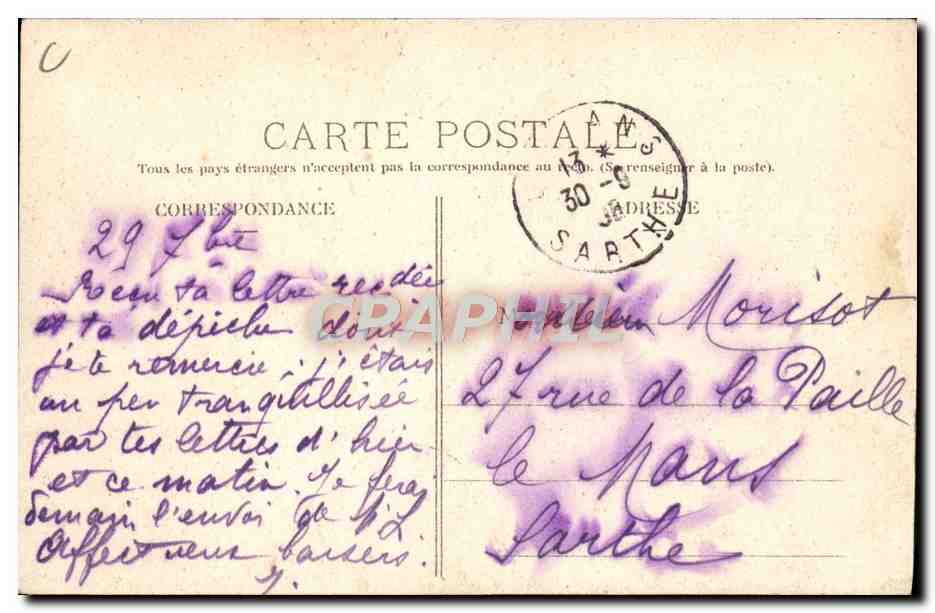 CARTE POSTALE
Tous les pays étrangers n'acceptent pas la correspondance au recto. (Se renseigner à la poste).
ANS
13 *
30 - 9
SARTHE
CORRESPONDANCE
ADRESSE
29 7bre
Reçu ta lettre recdée
et ta dépêche dont
je te remercie, j'étais
un peu tranquillisée
par tes lettres d'hier
et ce matin. Je ferai
demain l'envoi de
Affectueux baisers.
CPAPHIL
Morisot
27 rue de la Paille
le Mans
Sarthe